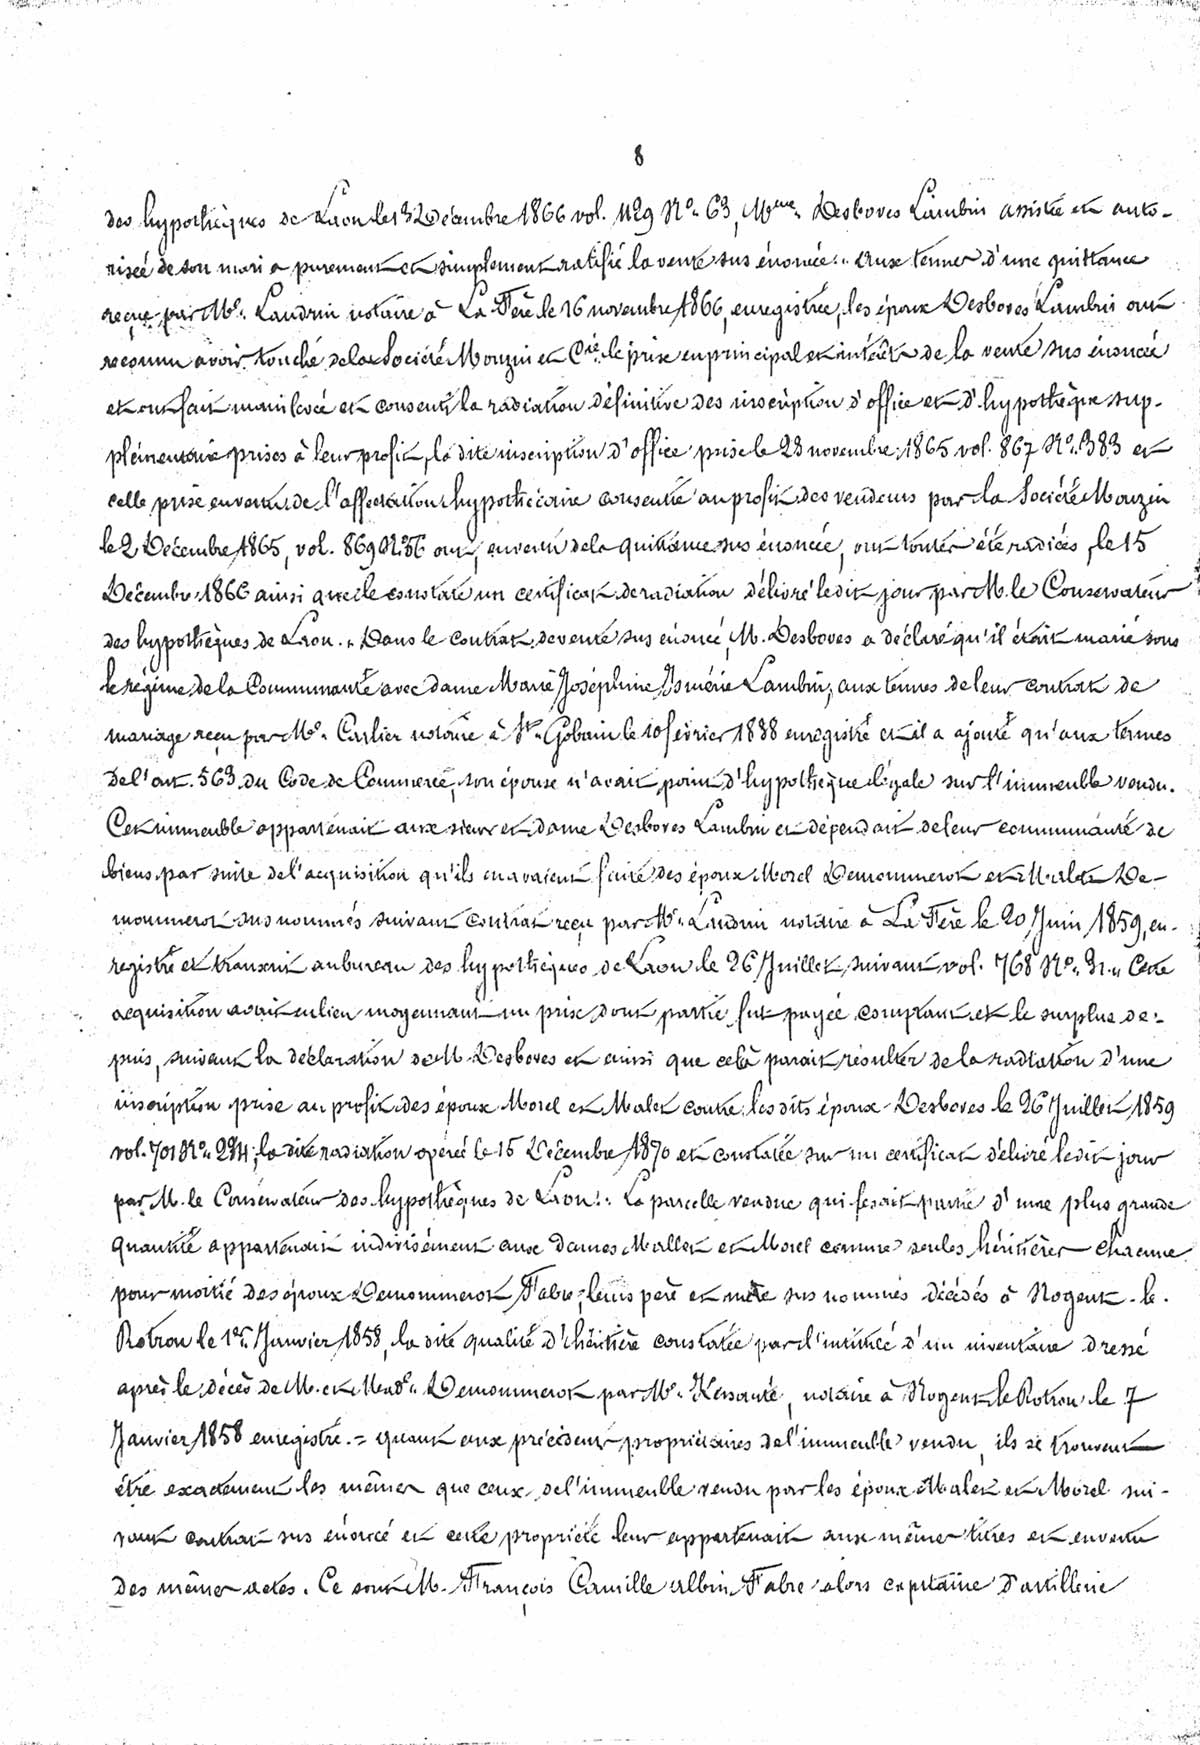 8
des hypothèques de Laon le 13 Décembre 1866 vol. 1129 No. 63, Mme Desboves Lambin assistée et auto-
risée de son mari a purement et simplement ratifié la vente sus énoncée. Aux termes d'une quittance
reçue par Me Landrin notaire à La Fère le 16 novembre 1866, enregistrée, les époux Desboves Lambin ont
reconnu avoir touché de la Société Mouzin et Cie le prix en principal et intérêts de la vente sus énoncée
et ont fait mainlevée et consenti la radiation définitive des inscription d'office et d'hypothèque sup-
plémentaire prises à leur profit, la dite inscription d'office prise le 23 novembre 1865 vol. 867 No. 383 et
celle prise en vertu de l'affectation hypothécaire consentie au profit des vendeurs par la Société Mouzin
le 2 Décembre 1865, vol. 869 No. 56 ont, en vertu de la quittance sus énoncée, ont toutes été radiées, le 15
Décembre 1866 ainsi que le constate un certificat de radiation délivré ledit jour par M. le Conservateur
des hypothèques de Laon. Dans le contrat de vente sus énoncé, M. Desboves a déclaré qu'il était marié sous
le régime de la Communauté avec dame Marie Joséphine Isménie Lambin, aux termes de leur contrat de
mariage reçu par Me Carlier notaire à St. Gobain le 10 février 1838 enregistré et il a ajouté qu'aux termes
de l'art. 563 du Code de Commerce, son épouse n'avait point d'hypothèque légale sur l'immeuble vendu.
Cet immeuble appartenait aux sieur et dame Desboves Lambin et dépendait de leur communauté de
biens par suite de l'acquisition qu'ils en avaient faite des époux Morel Demommerot et Malet De-
mommerot sus nommés suivant contrat reçu par Me Landrin notaire à La Fère le 20 Juin 1859, en-
registré et transcrit au bureau des hypothèques de Laon le 26 Juillet suivant vol. 768 No. 31. Cette
acquisition avait eu lieu moyennant un prix dont partie fut payée comptant et le surplus de-
puis, suivant la déclaration de M. Desboves et ainsi que celà parait résulter de la radiation d'une
inscription prise au profit des époux Morel et Malet contre les dits époux Desboves le 26 Juillet 1859
vol. 701 No. 234; la dite radiation opérée le 15 Décembre 1870 et constatée sur un certificat délivré ledit jour
par M. le Conservateur des hypothèques de Laon. La parcelle vendue qui fesait partie d'une plus grande
quantité appartenait indivisément aux dames Mallet et Morel comme seules héritières chacune
pour moitié des époux Demommerot Fabre, leurs père et mère sus nommés décédés à Nogent-le-
Rotrou le 1er Janvier 1858, la dite qualité d'héritière constatée par l'intitulé d'un inventaire dressé
après le décès de M. et Made Demommerot par Me, notaire à Nogent le Rotrou le 7
Janvier 1858 enregistré. = quant aux précédents propriétaires de l'immeuble vendu, ils se trouvent
être exactement les mêmes que ceux de l'immeuble vendu par les époux Malet et Morel sui-
vant contrat sus énoncé et cette propriété leur appartenait aux mêmes titres et en vertu
des mêmes actes. Ce sont M. François Camille Albin Fabre alors capitaine d'artillerie